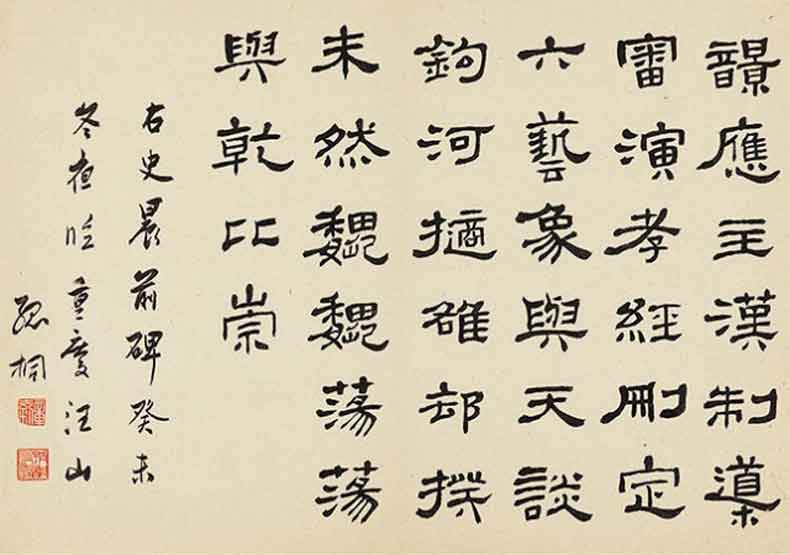 應主漢制道
審演孝經刪定
六藝象與天談
鉤河擿雒却揆
未然魏魏蕩蕩
與乾比崇
右史晨前碑癸未
冬夜時重慶汪山
孤桐